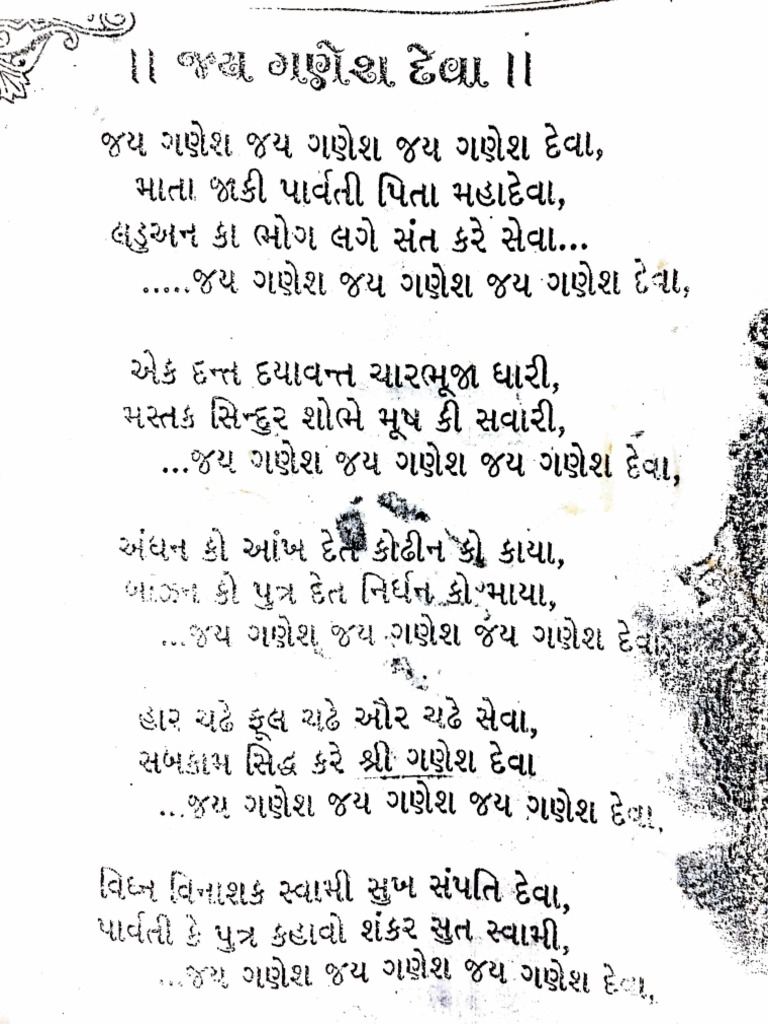 ॥ જય ગણેશ દેવા ॥
જય ગણેશ જય ગણેશ જય ગણેશ દેવા,
માતા જાકી પાર્વતી પિતા મહાદેવા,
લડુઅન કા ભોગ લગે સંત કરે સેવા...
.....જય ગણેશ જય ગણેશ જય ગણેશ દેવા,
એક દન્ત દયાવન્ત ચારભૂજા ધારી,
મસ્તક સિન્દુર શોભે મૂષ કી સવારી,
...જય ગણેશ જય ગણેશ જય ગણેશ દેવા,
અંધન કો આંખ દેત કોઢીન કો કાયા,
બાંઝન કો પુત્ર દેત નિર્ધન કો માયા,
...જય ગણેશ જય ગણેશ જય ગણેશ દેવા,
હાર ચઢે ફૂલ ચઢે ઔર ચઢે સેવા,
સબકામ સિદ્ધ કરે શ્રી ગણેશ દેવા
...જય ગણેશ જય ગણેશ જય ગણેશ દેવા,
વિઘ્ન વિનાશક સ્વામી સુખ સંપતિ દેવા,
પાર્વતી કે પુત્ર કહાવો શંકર સુત સ્વામી,
...જય ગણેશ જય ગણેશ જય ગણેશ દેવા,